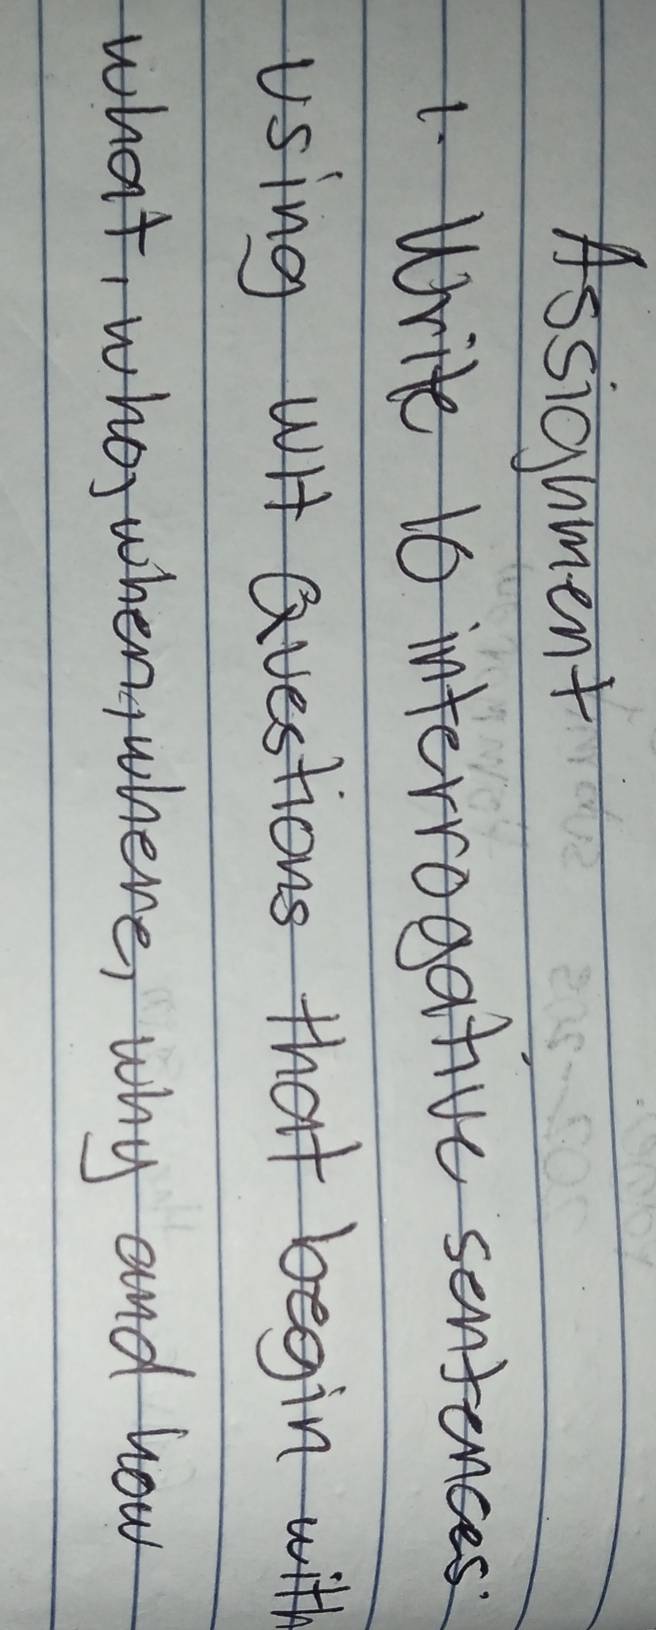 Assignment
1. Write 10 interrogative sentences.
using WH Questions that begin with
what, who, when, where, why and how